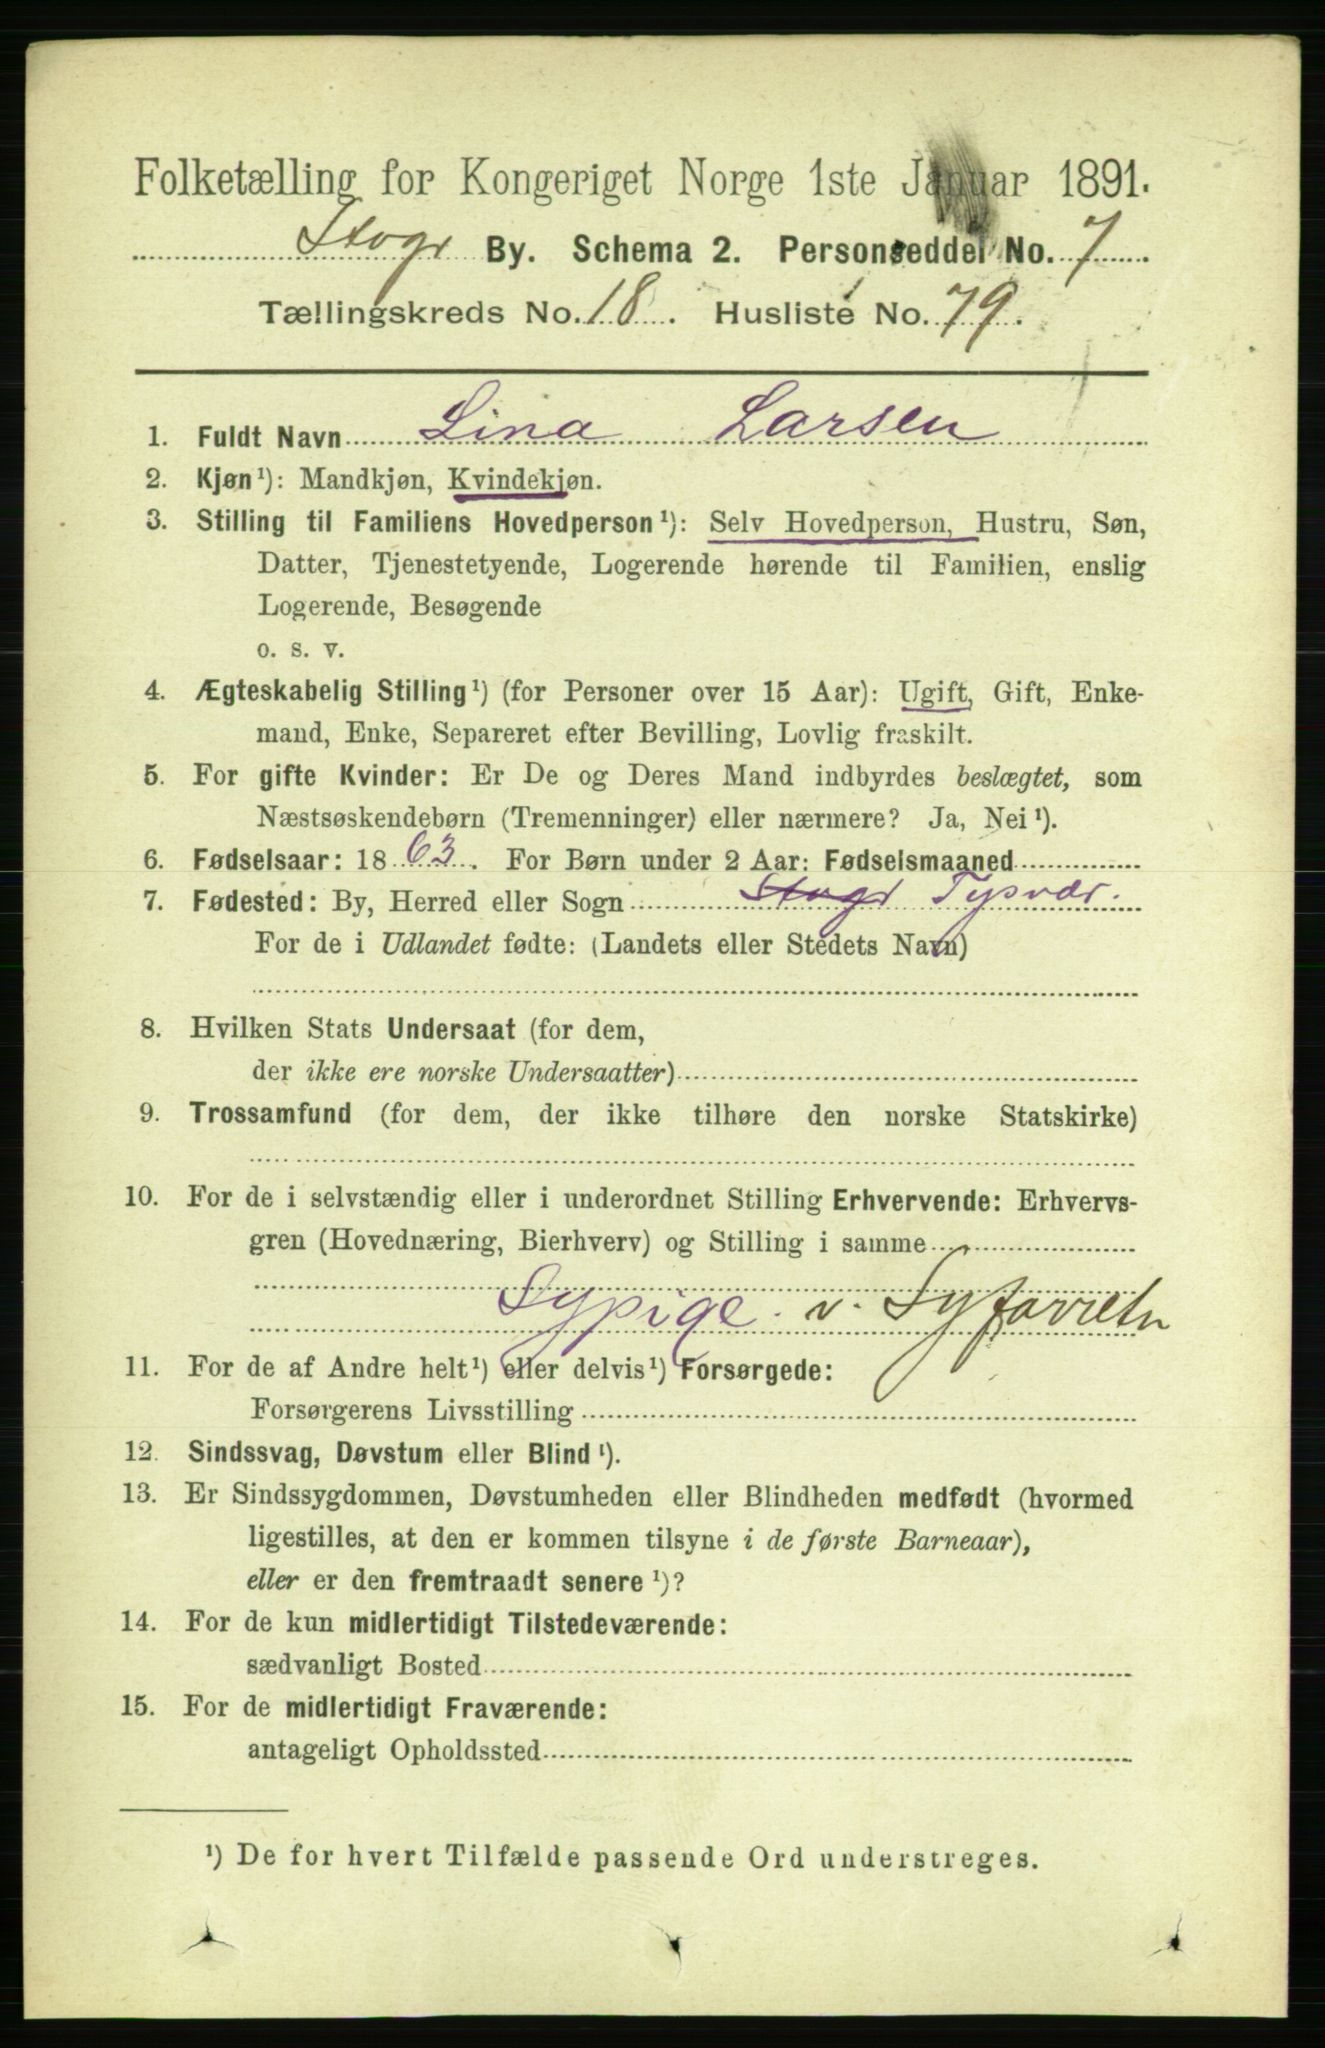 Folketælling for Kongeriget Norge 1ste Januar 1891.
Hvgr By. Schema 2. Personseddel No. 7
Tællingskreds No. 18. Husliste No. 79.
1. Fuldt Navn Lina Larsen
2. Kjøn¹): Mandkjøn, Kvindekjøn.
3. Stilling til Familiens Hovedperson¹): Selv Hovedperson, Hustru, Søn,
Datter, Tjenestetyende, Logerende hørende til Familien, enslig
Logerende, Besøgende
o. s. v.
4. Ægteskabelig Stilling¹) (for Personer over 15 Aar): Ugift, Gift, Enke-
mand, Enke, Separeret efter Bevilling, Lovlig fraskilt.
5. For gifte Kvinder: Er De og Deres Mand indbyrdes beslægtet, som
Næstsøskendebørn (Tremenninger) eller nærmere? Ja, Nei¹).
6. Fødselsaar: 1863. For Børn under 2 Aar: Fødselsmaaned
7. Fødested: By, Herred eller Sogn Hvgr Tysvær.
For de i Udlandet fødte: (Landets eller Stedets Navn)
8. Hvilken Stats Undersaat (for dem,
der ikke ere norske Undersaatter)
9. Trossamfund (for dem, der ikke tilhøre den norske Statskirke)
10. For de i selvstændig eller i underordnet Stilling Erhvervende: Erhvervs-
gren (Hovednæring, Bierhverv) og Stilling i samme
Sypige. v. Syforretn
11. For de af Andre helt¹) eller delvis¹) Forsørgede:
Forsørgerens Livsstilling
12. Sindssvag, Døvstum eller Blind¹).
13. Er Sindssygdommen, Døvstumheden eller Blindheden medfødt (hvormed
ligestilles, at den er kommen tilsyne i de første Barneaar),
eller er den fremtraadt senere¹)?
14. For de kun midlertidigt Tilstedeværende:
sædvanligt Bosted
15. For de midlertidigt Fraværende:
antageligt Opholdssted
¹) De for hvert Tilfælde passende Ord understreges.